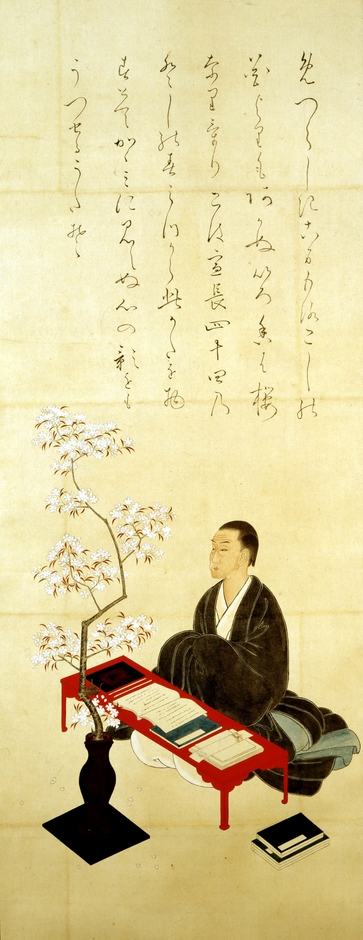 めつらしきこまもろこしの
花よりもあかぬいろ香は桜
なりけり こは宣長四十四乃
としの春みつから此かたを物
すとてかゝみに見えぬ心の影をも
うつせるうたそ